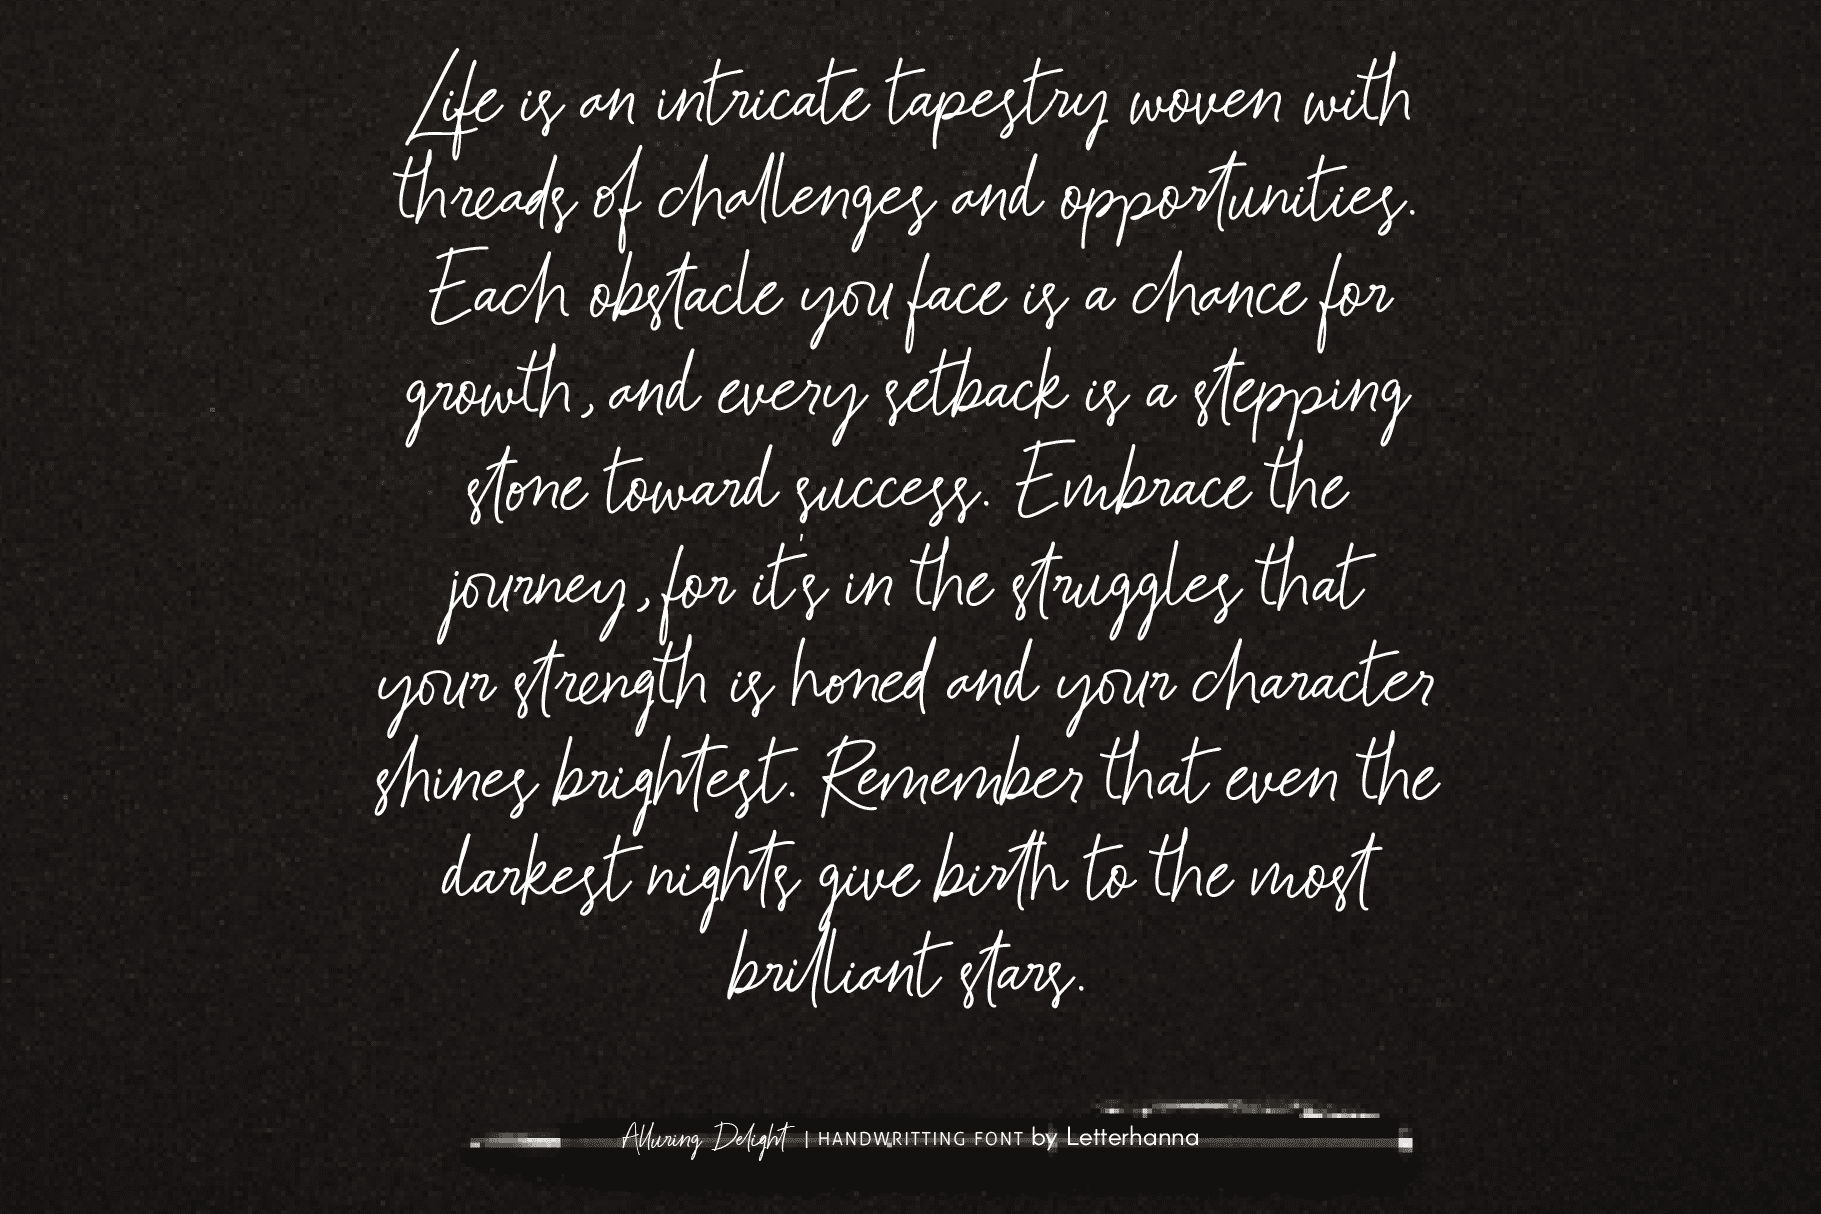 Life is an intricate tapestry woven with
threads of challenges and opportunities.
Each obstacle you face is a chance for
growth, and every setback is a stepping
stone toward success. Embrace the
journey, for it's in the struggles that
your strength is honed and your character
shines brightest. Remember that even the
darkest nights give birth to the most
brilliant stars.
Alluring Delight | HANDWRITTING FONT by Letterhanna